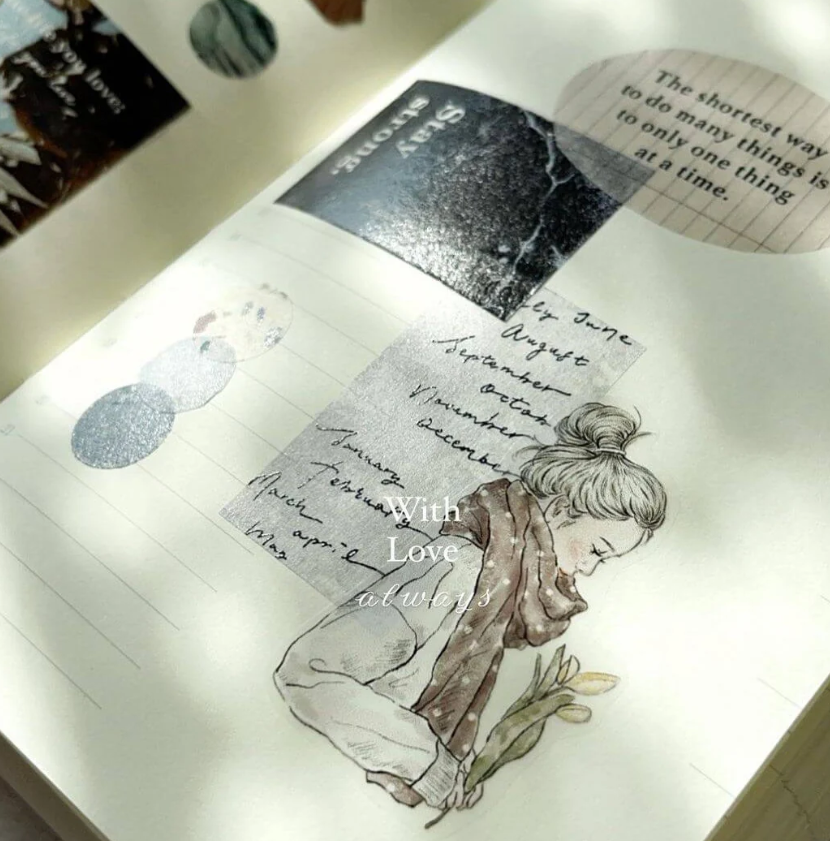 you love!
Stay
strong.
The shortest way
to do many things is
to only one thing
at a time.
ly June
August
September
octob
November
December
January
February
March
april
May
With
Love
always